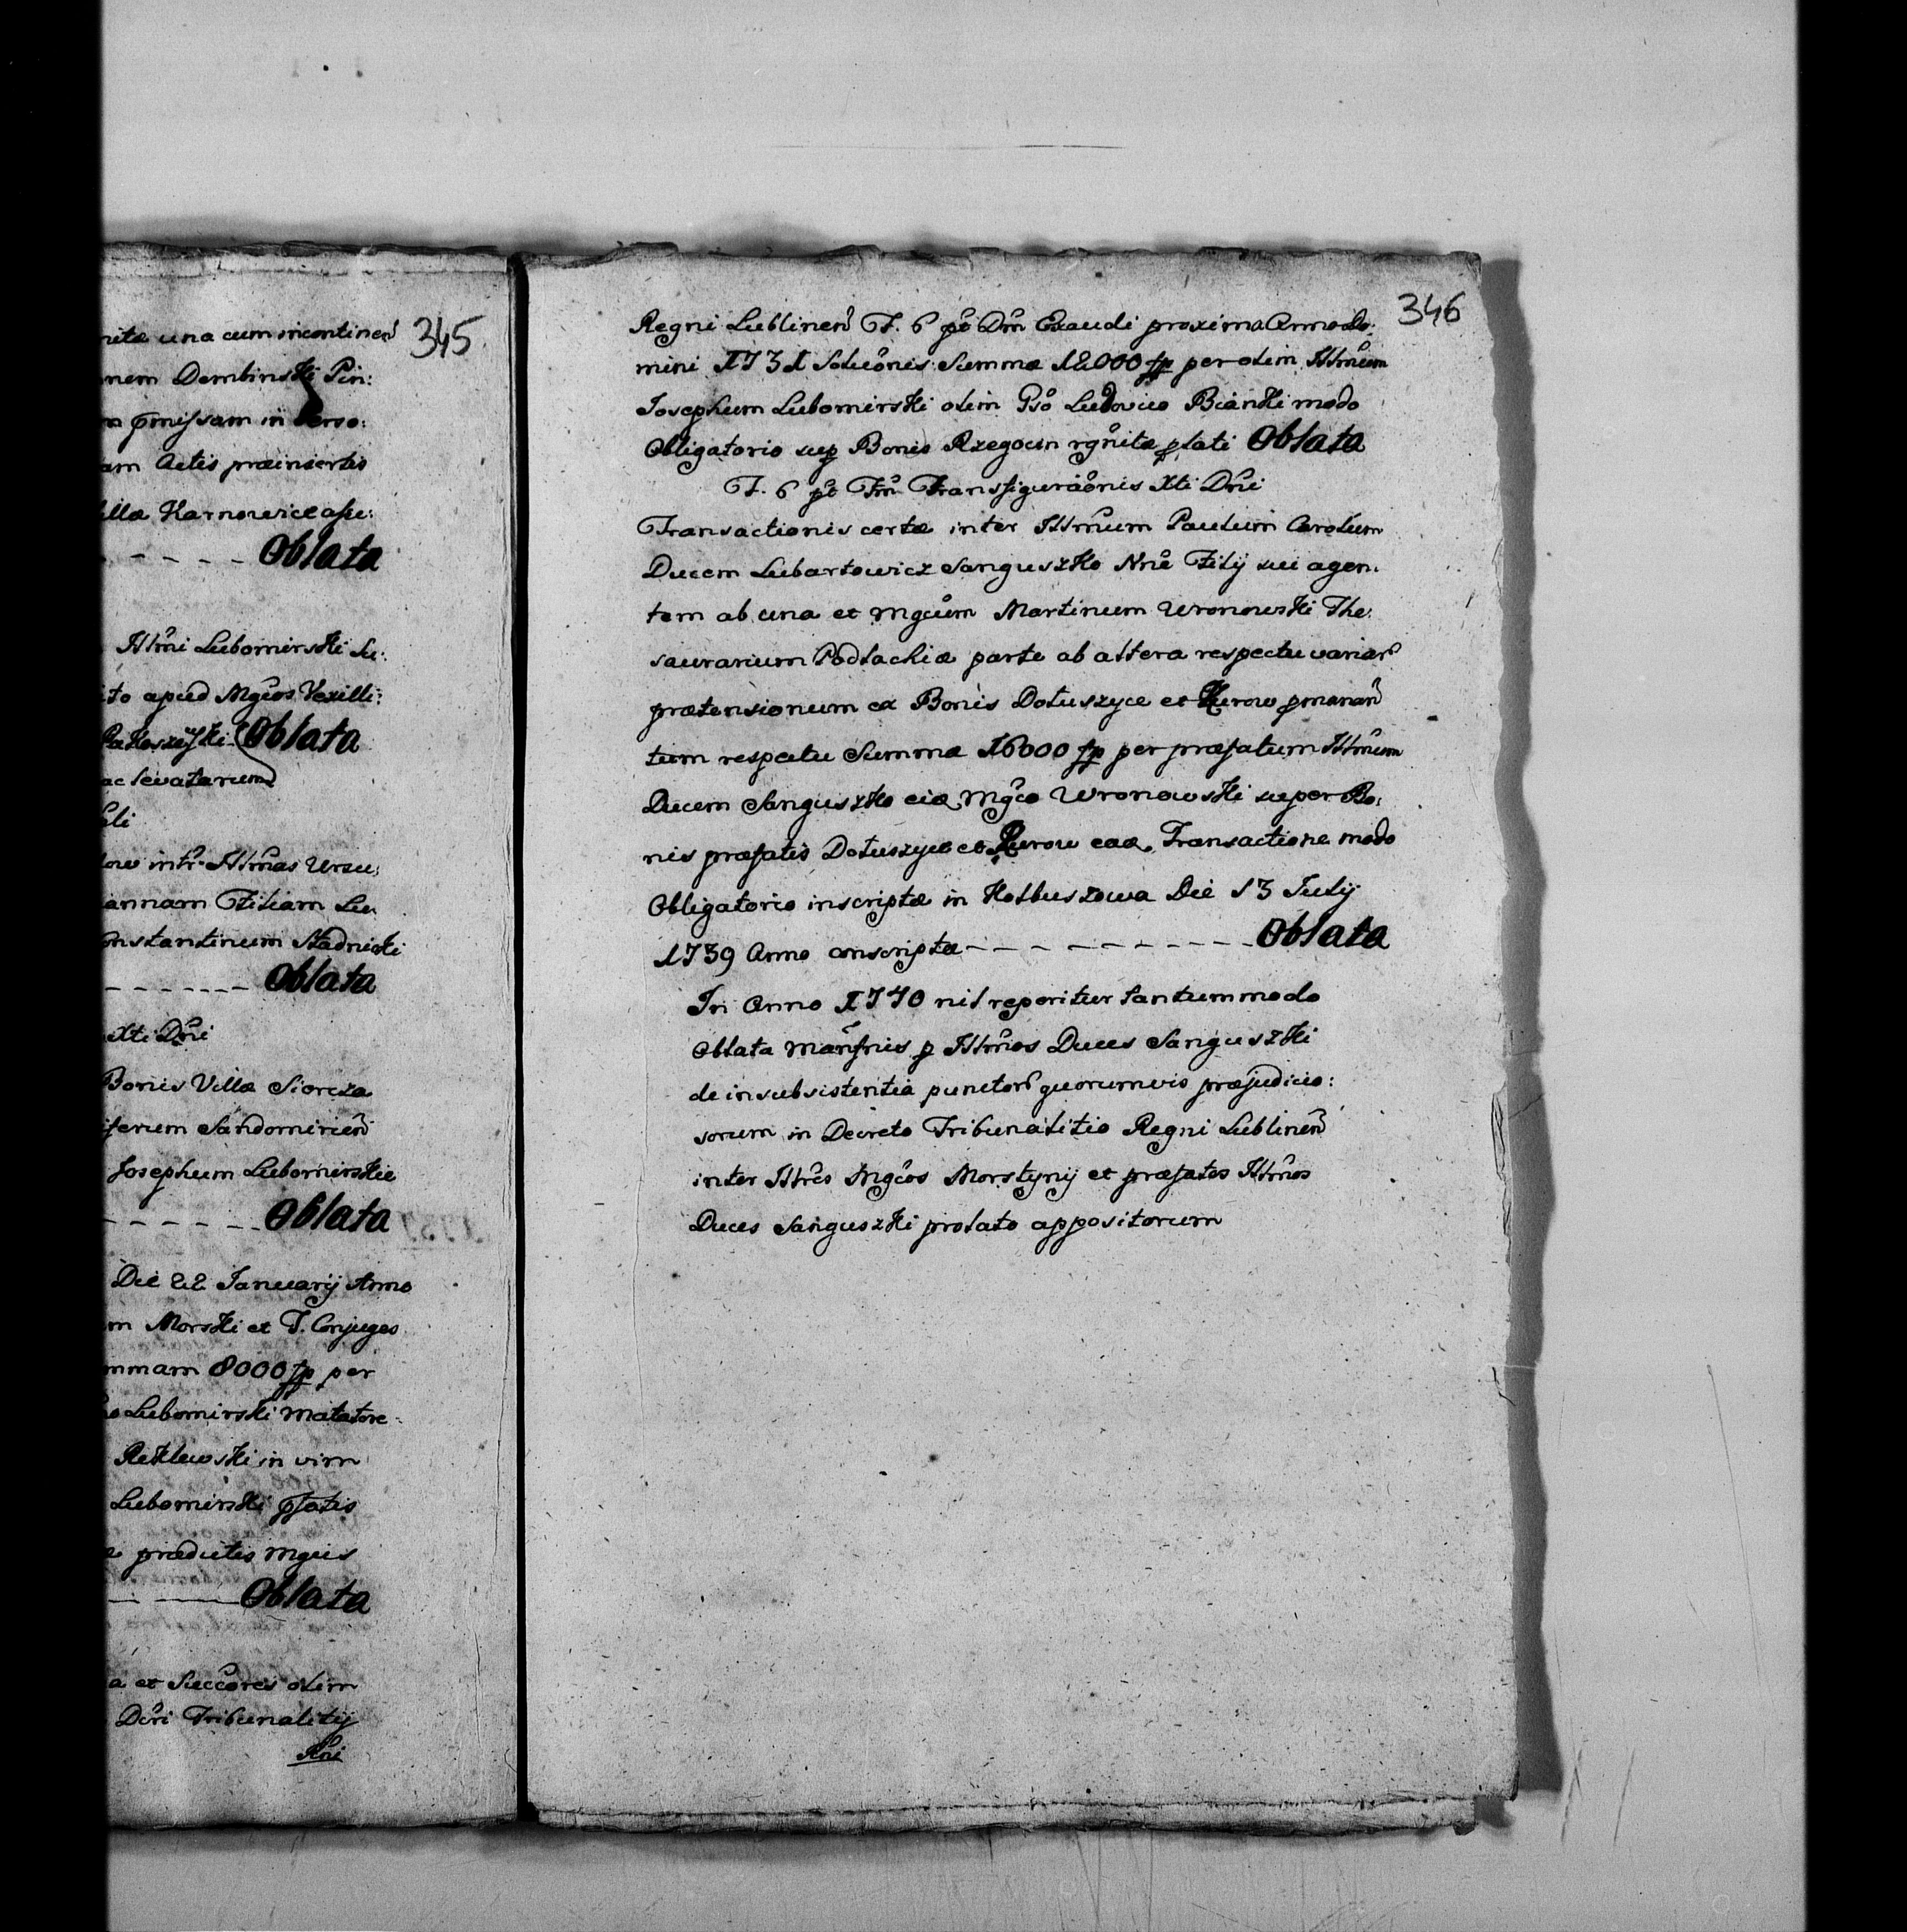 345
una cum incontinen
Dembinski Pin:
pmissam in Verso:
Actis præinsertis
Karnowice
Oblata
Illmi Lubomirski
apud Mgcos Vexilli:
Oblata
ac levatarum
intr Illmas Ursu:
Filiam Lu
Constantinum Stadnicki
Oblata
Xti Dni
Bonis Villæ Siorcza
Sandomirien
Josephum Lubomirskie
Oblata
Die 22 Januarij Anno
Morski et T. Conjuges
8000 fp per
Lubomirski
in vim
Lubomirski pfatis
prædictis Mgcis
Oblata
et Succores olim
Dcri Tribunalitij
Rni
346
Regni Lublinen F. 6 pt Dm Exaudi proxima Anno Do:
mini 1731 Soluonis Summæ 12000 fp per olim Illmum
Josephum Lubomirski olim Gso Ludovico Bianki modo
Obligatorio sup Bonis Rzegocin rgnitæ plati Oblata
F. 6 pt Fm Transfiguraonis Xti Dni
Transactionis certæ inter Illmum Paulum Carolum
Ducem Lubartowicz Sanguszko Nne Filij sui agen:
tem ab una et Mgcum Martinum Wronowski The:
saurarium Podlachiæ parte ab altera respectu variar
prætensionum ex Bonis Dołuszyce et Kurow pmanan
tum respectu Summæ 16000 fp per præfatum Illmum
Ducem Sanguszko eid Mgco Wronowski super Bo:
nis præfatis Dołuszyce et Kurow ead Transactione modo
Obligatorio inscriptæ in Kolbuszowa Die 13 Julij
1739 Anno conscriptæ - - - - - - - - - - Oblata
In Anno 1740 nil reperitur tantummodo
Oblata Manfnis p Illmos Duces Sanguszki
de insubsistentia punctor quorumvis præjudicio:
sorum in Decreto Tribunalitio Regni Lublinen
inter Illres Mgcos Morstynij et præfatos Illmos
Duces Sanguszki prolato appositorum